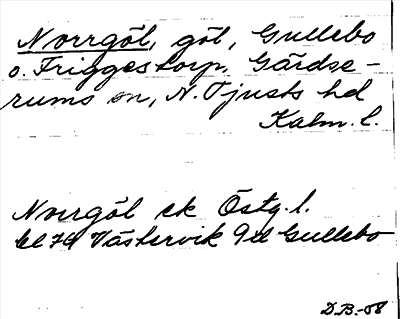 Norrgöl, göl, Gullebo
o. Friggestorp, Gärdse-
rums sn, N. Tjusts hd
Kalm. l.
Norrgöl ek Östg. l.
bl 74 Västervik 9 d Gullebo
D.B.-08